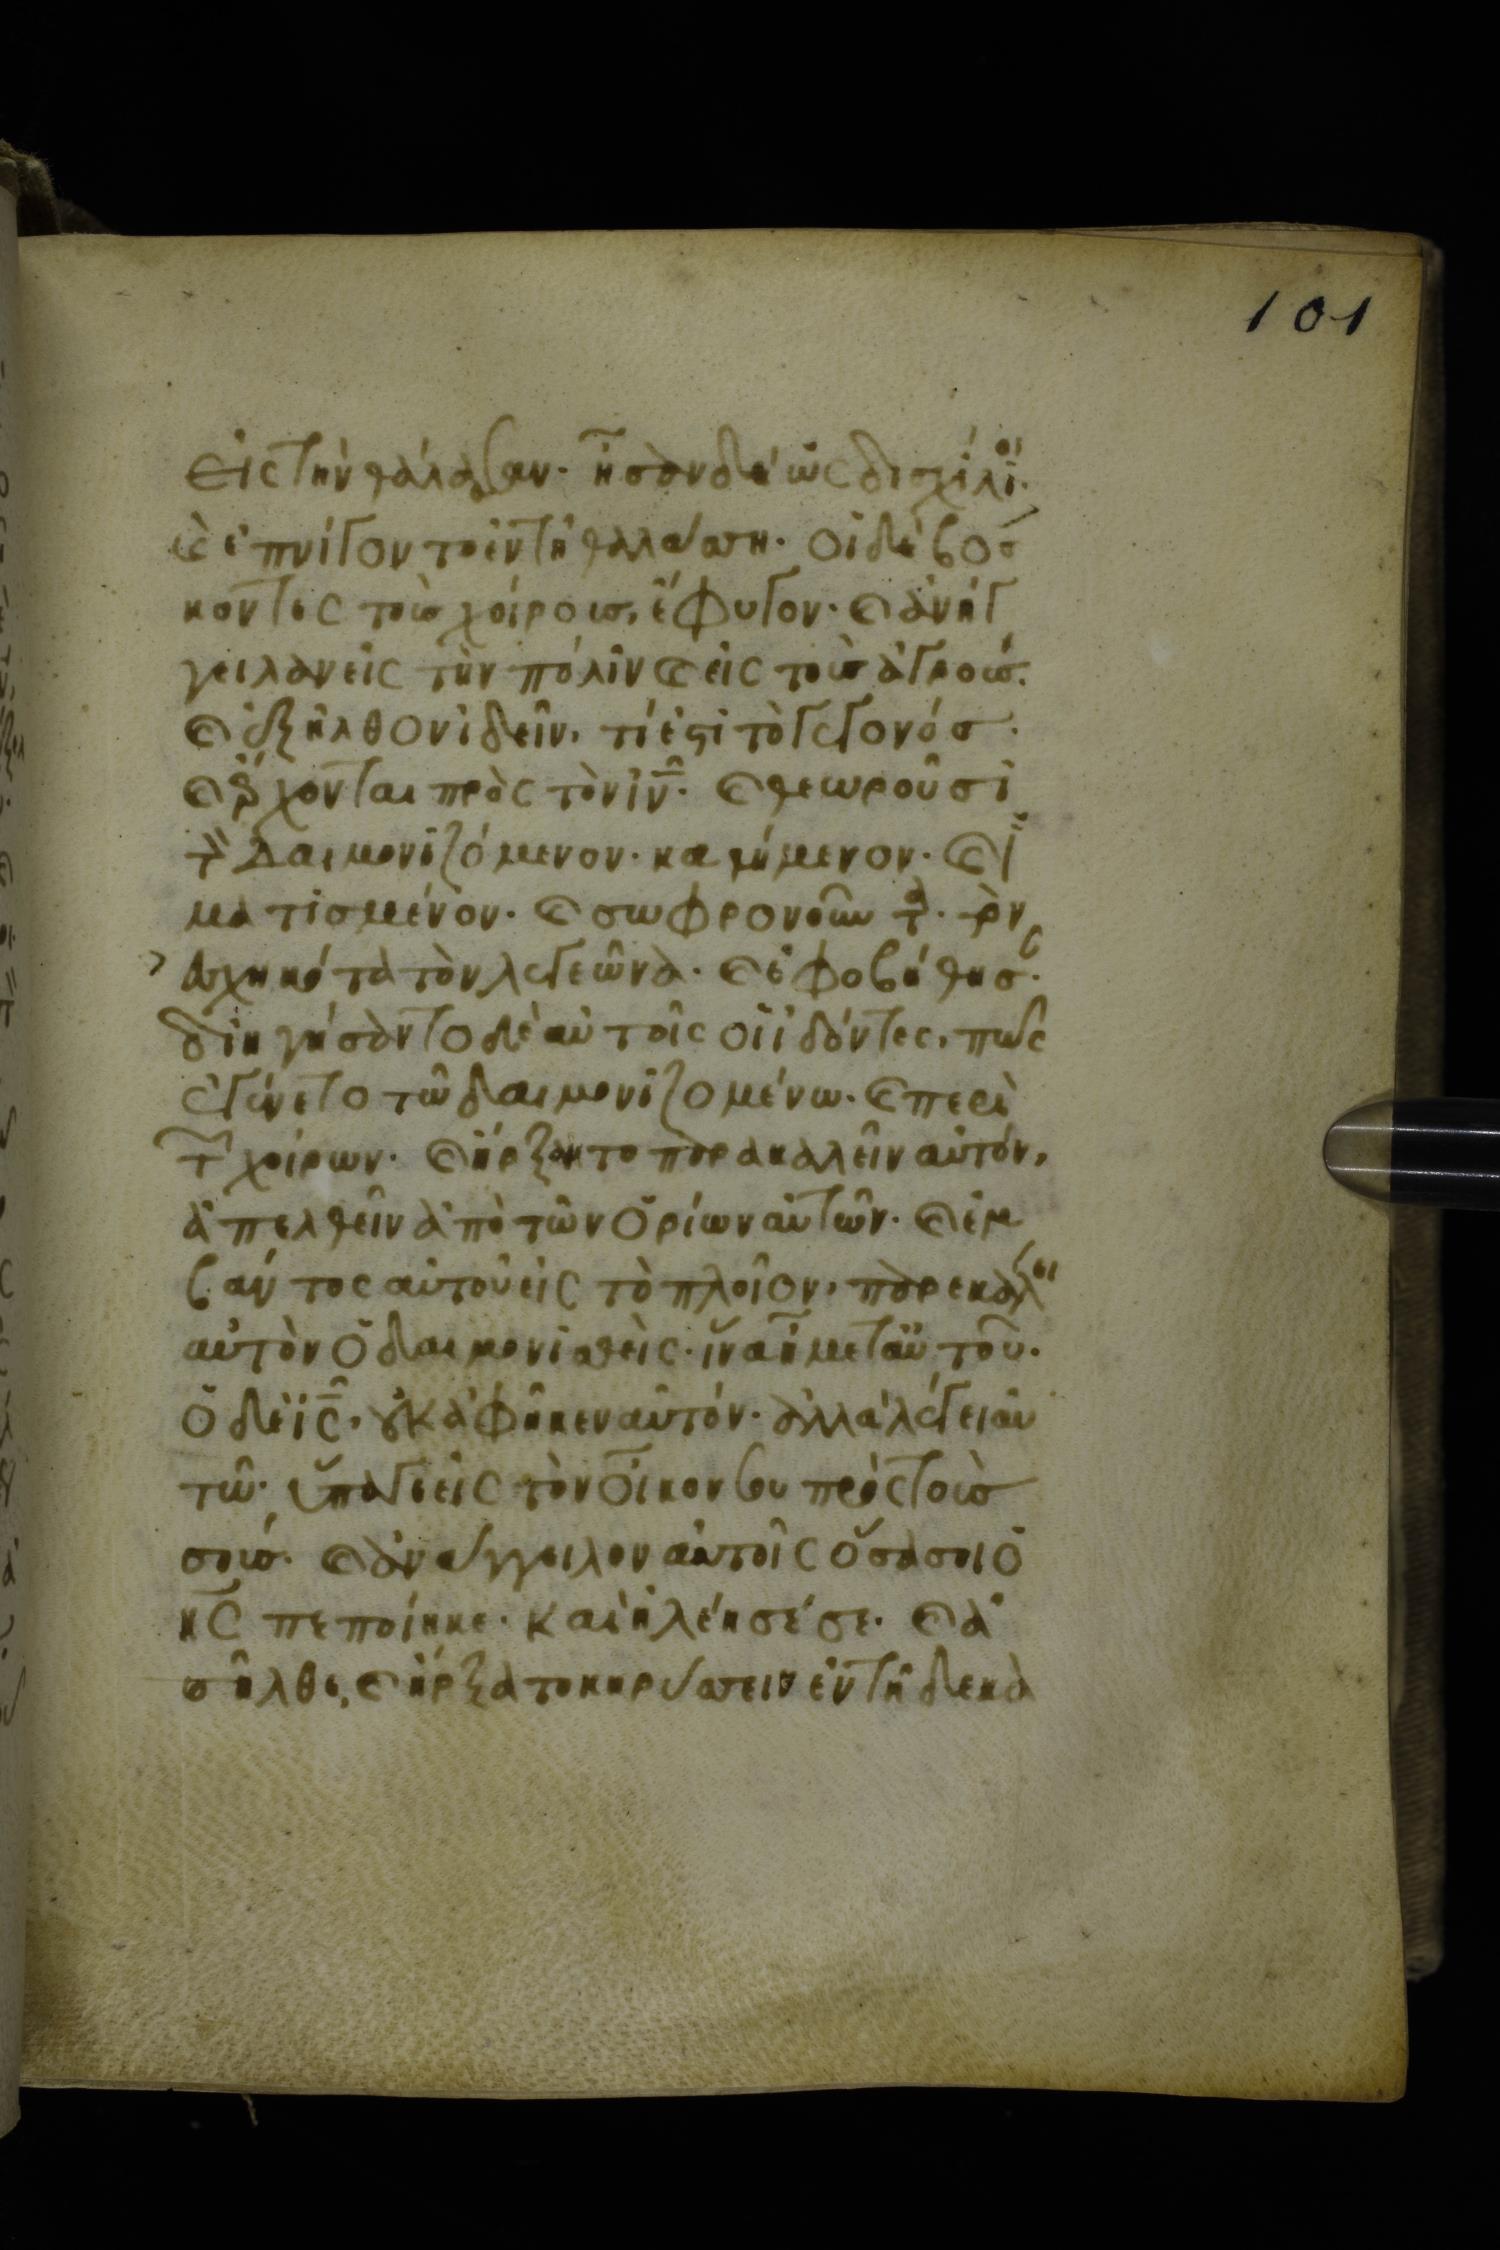 101
εἰς τὴν θάλασσαν· ἦσαν δὲ ὡς δισχίλιοι·
καὶ ἐπνίγοντο ἐν τῇ θαλάσση· οἱ δὲ βόσ
κοντες τοὺς χοίρους, ἔφυγον· καὶ ἀνήγ
γειλαν εἰς τὴν πόλιν καὶ εἰς τοὺς ἀγρούς·
καὶ ἐξῆλθον ἰδεῖν, τί ἐστὶ τὸ γεγονός·
καὶ ἔρχονται πρὸς τὸν ιν̅· καὶ θεωροῦσι
τὸν δαιμονιζόμενον· καθήμενον· καὶ ἱ
ματισμένον· καὶ σωφρονοῦντα· τὸν
ἐσχηκότα τὸν λεγεῶνα· καὶ ἐφοβήθησαν·
διηγήσαντο δὲ αὐτοῖς οἱ ἰδόντες, πῶς
ἐγένετο τῶ δαιμονιζομένω· καὶ περὶ
τῶν χοίρων· καὶ ἤρξαντο παρακαλεῖν αὐτόν,
ἀπελθεῖν ἀπὸ τῶν ὁρίων αὐτῶν· καὶ ἐμ
βάντος αὐτοῦ εἰς τὸ πλοῖον, παρεκάλει
αὐτὸν ὁ δαιμονισθεὶς· ἵνα ἦ μετ αὐτοῦ·
ὁ δὲ ις̅, οὐκ ἀφῆκεν αὐτόν· ἀλλὰ λέγει αὐ
τῶ· ὕπαγε εἰς τὸν οἶκον σου πρὸς τοὺς
σούς· καὶ ἀνάγγειλον αὐτοῖς ὅσα σοι ὁ
κς̅ πεποίηκε· καὶ ἠλέησέ σε· καὶ ἀ
πῆλθε, καὶ ἤρξατο κηρύσσειν ἐν τῆ δεκα